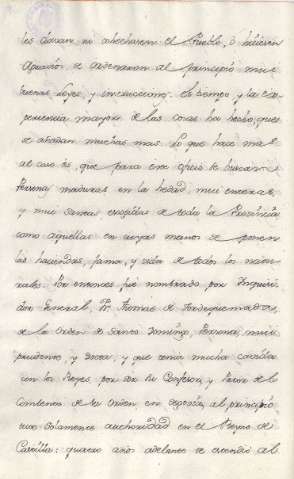 les dexan ni cohechasen el Pueblo, ó hiciesen
Agravios se ordenaron al principio mui
buenas Leyes, y instrucciones. El tiempo y la ex-
periencia mayor de las cosas ha hecho, que
se añadan muchas mas. Lo que hace mas
al caso es, que para este oficio se buscan
Personas maduras en la hedad, mui enteras,
y mui santas, escogidas de toda la Provincia
como aquellas en cuyas manos se ponen
las haciendas, fama, y vida de todos los natu-
rales. Por entonces fué nombrado por Inquisi-
dor General, Fr. Thomas de Tordequemada,
de la Orden de Santo Domingo, Persona mui
prudente, y docta, y que tenia mucha cavida
con los Reyes, por ser su Confesor, y Prior de el
Combento de su Orden en Segovia, al principio
tuvo solamente authoridad en el Reyno de
Castilla: quatro años adelante se estendió al